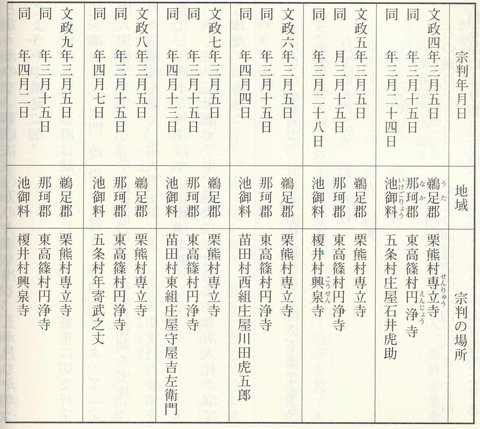 宗判年月日 地域 宗判の場所
文政四年三月五日 鵜足郡(うた) 栗熊村専立寺(せんりゅう)
同 年三月十五日 那珂郡(なか) 東高篠村円浄寺(えんじょう)
同 年三月二十四日 池御料(いけごりょう) 五条村庄屋石井虎助
文政五年三月五日 鵜足郡 栗熊村専立寺
同 月三月十五日 那珂郡 東高篠村円浄寺
同 年三月二十八日 池御料 榎井村興泉寺(こうせん)
文政六年三月五日 鵜足郡 栗熊村専立寺
同 年三月十五日 那珂郡 東高篠村円浄寺
同 年四月四日 池御料 苗田村西組庄屋川田虎五郎
文政七年三月五日 鵜足郡 栗熊村専立寺
同 年三月十五日 那珂郡 東高篠村円浄寺
同 年四月十三日 池御料 苗田村東組庄屋守屋吉左衛門
文政八年三月五日 鵜足郡 栗熊村専立寺
同 年三月十五日 那珂郡 東高篠村円浄寺
同 年四月七日 池御料 五条村年寄武之丈
文政九年三月五日 鵜足郡 栗熊村専立寺
同 年三月十五日 那珂郡 東高篠村円浄寺
同 年四月二日 池御料 榎井村興泉寺